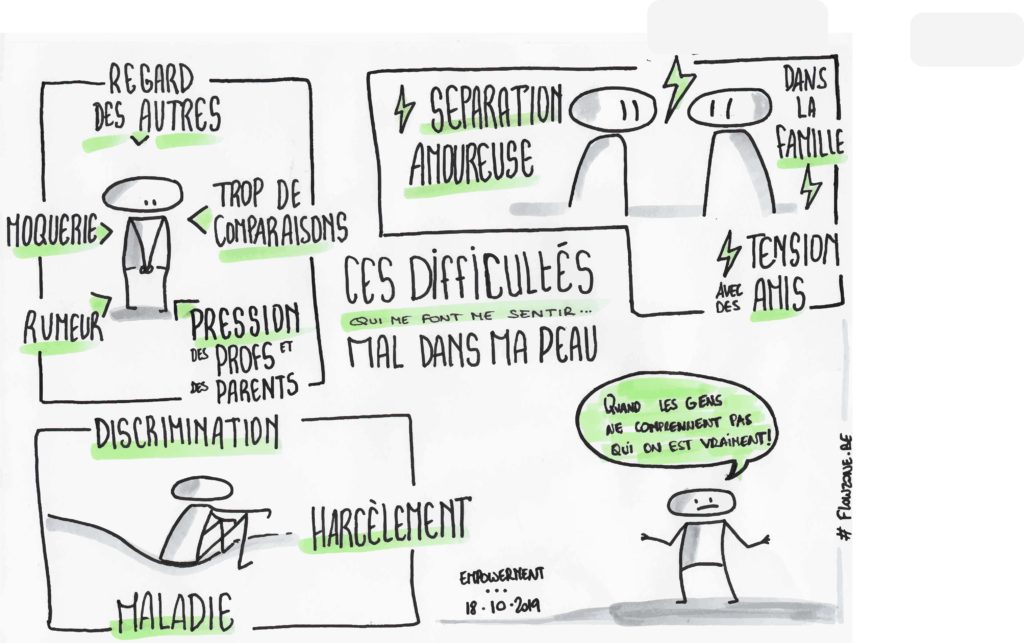 REGARD
DES AUTRES
MOQUERIE
TROP DE
COMPARAISONS
RUMEUR
PRESSION
DES PROFS ET
DES PARENTS
SEPARATION
AMOUREUSE
DANS
LA
FAMILLE
TENSION
AVEC DES AMIS
CES DIFFICULTÉS
QUI ME FONT ME SENTIR...
MAL DANS MA PEAU
DISCRIMINATION
HARCÈLEMENT
MALADIE
QUAND LES GENS
NE COMPRENNENT PAS
QUI ON EST VRAIMENT!
EMPOWERMENT
...
18.10.2019
# FLOWZONE.BE